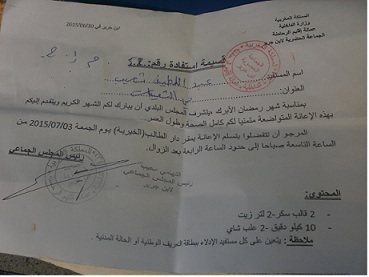 المملكة المغربية
وزارة الداخلية
عمالة إقليم الرحامنة
الجماعة الحضرية لابن جرير
ابن جرير في 2015/06/30
قسيمة استفادة رقم:
اسم المستفيد: عبد اللطيف
العنوان:
بمناسبة شهر رمضان الأبرك يتشرف المجلس البلدي أن يبارك لكم الشهر الكريم ويتقدم إليكم
بهذه الإعانة المتواضعة متمنيا لكم كامل الصحة وطول العمر.
المرجو أن تتفضلوا بتسلم الإعانة بمقر دار الطالب(الخيرية) يوم الجمعة 2015/07/03 من
الساعة التاسعة صباحا إلى حدود الساعة الرابعة بعد الزوال.
رئيس المجلس الجماعي
المحتوى:
- 2 قالب سكر-2 لتر زيت
- 10 كيلو دقيق -2 علب شاي
ملاحظة : يتعين على كل مستفيد الإدلاء ببطاقة التعريف الوطنية أو الحالة المدنية .